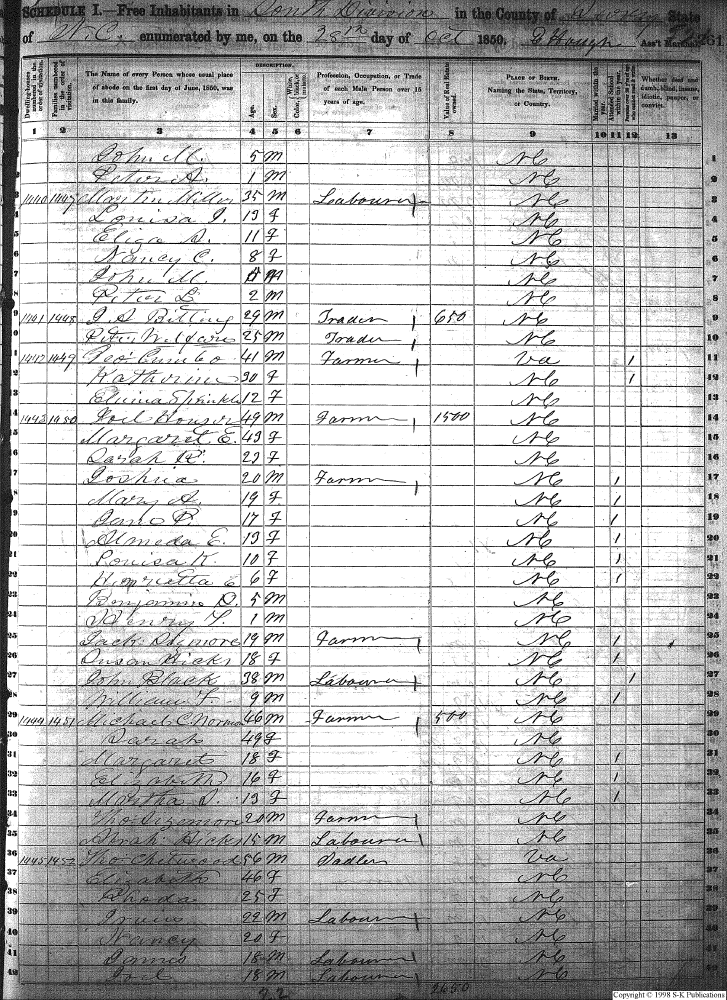 SCHEDULE I.—Free Inhabitants in South Division in the County of State
of N.C. enumerated by me, on the 28th day of Oct 1850. Ass't Marshal. 261
Dwelling-houses numbered in the order of visitation.
Families numbered in the order of visitation.
The Name of every Person whose usual place of abode on the first day of June, 1850, was in this family.
DESCRIPTION.
Age.
Sex.
White, Color,
Profession, Occupation, or Trade of each Male Person over 15 years of age.
Value of Real Estate owned.
PLACE OF BIRTH. Naming the State, Territory, or Country.
Married within the year.
Attended School within the year.
Whether deaf and dumb, blind, insane, idiotic, pauper, or convict.
1 2 3 4 5 6 7 8 9 10 11 12 13
John M. 5 M NC 1
Peter A. 1 M NC 2
1440 1447 Martin Miller 35 M Labourer NC 3
Louisa J. 13 F NC 4
Eliza A. 11 F NC 5
Nancy C. 8 F NC 6
John M. M NC 7
Peter L 2 M NC 8
1441 1448 J A Bitting 29 M Trader 650 NC 9
Peter 25 M Trader NC 10
1442 1449 Geo Cumbo 41 M Farmer Va 1 11
Katherine 30 F NC 1 12
Elvina Sprinkle 12 F NC 13
1443 1450 Joel Houser 49 M Farmer 1500 NC 14
Margaret E. 43 F NC 15
Sarah R. 23 F NC 16
Joshua 20 M Farmer NC 1 17
Mary A. 19 F NC 1 18
Jane P. 17 F NC 1 19
Almeda E. 13 F NC 1 20
Louisa K. 10 F NC 1 21
Henrietta E 6 F NC 1 22
Benjamin D. 5 M NC 23
Henry T. 1 M NC 24
Jack 19 M Farmer NC 1 25
Susan Hicks 18 F NC 1 26
John Black 38 M Labourer NC 1 27
William F. 9 M NC 1 28
1444 1451 Michael C Norman 46 M Farmer 500 NC 29
Sarah 49 F NC 30
Margaret 18 F NC 1 31
Elizabeth 16 F NC 1 32
Martha S. 13 F NC 1 33
Tho Sizemore 20 M Farmer NC 34
Hicks 15 M Labourer NC 35
1445 1452 Tho Chitwood 56 M Sadler Va 36
Elizabeth 46 F NC 37
Rhoda 25 F NC 38
22 M Labourer NC 39
Nancy 20 F NC 40
James 18 M Labourer NC 41
Joel 18 M Labourer NC 42
22 2650
Copyright © 1998 S-K Publications